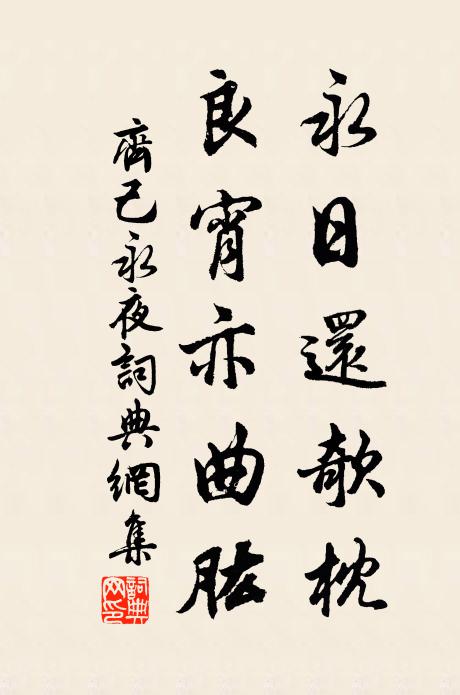 永日還欹枕
良宵亦曲肱
齊己永夜詞典網集
詞典
网印